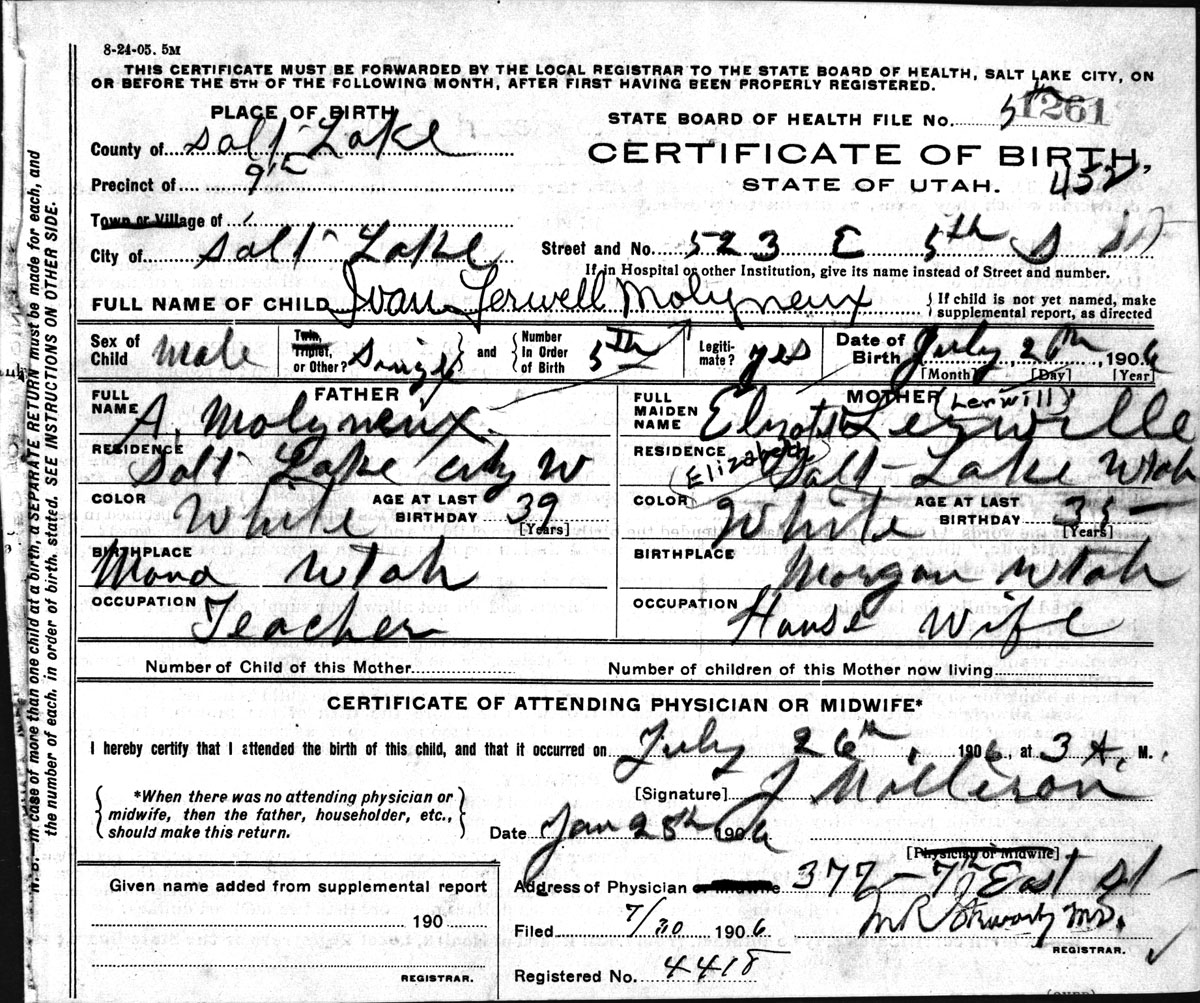 8-24-05. 5M
THIS CERTIFICATE MUST BE FORWARDED BY THE LOCAL REGISTRAR TO THE STATE BOARD OF HEALTH, SALT LAKE CITY, ON
OR BEFORE THE 5TH OF THE FOLLOWING MONTH, AFTER FIRST HAVING BEEN PROPERLY REGISTERED.
PLACE OF BIRTH
STATE BOARD OF HEALTH FILE No. 5th 1261
County of Salt Lake
CERTIFICATE OF BIRTH,
Precinct of 9th
STATE OF UTAH. 452
Town or Village of
City of Salt Lake
Street and No. 523 E 5th S St
If in Hospital or other Institution, give its name instead of Street and number.
FULL NAME OF CHILD Ivan Lerwell Molyneux
{ If child is not yet named, make
supplemental report, as directed
Sex of Child Male
Twin, Triplet, or Other? Single
and
Number In Order of Birth 5th
Legiti-mate? yes
Date of Birth July 26th, 1906
[Month] [Day] [Year]
FATHER
FULL NAME A. Molyneux.
MOTHER (Lerwill)
FULL MAIDEN NAME Elizabth Lerwille
RESIDENCE Salt Lake City U
RESIDENCE (Elizabeth) Salt Lake Utah
COLOR White
AGE AT LAST BIRTHDAY 39
[Years]
COLOR White
AGE AT LAST BIRTHDAY 35
[Years]
BIRTHPLACE Mona Utah
BIRTHPLACE Morgan Utah
OCCUPATION Teacher
OCCUPATION House Wife
Number of Child of this Mother
Number of children of this Mother now living
CERTIFICATE OF ATTENDING PHYSICIAN OR MIDWIFE*
I hereby certify that I attended the birth of this child, and that it occurred on July 26th, 1906, at 3 A. M.
*When there was no attending physician or
midwife, then the father, householder, etc.,
should make this return.
[Signature] J
Date Jan 28th 1906
[Physician or Midwife]
Address of Physician or Midwife 377 - 7th East St
Given name added from supplemental report
190
REGISTRAR.
Filed 7/30 1906
M.D.
REGISTRAR.
Registered No. 4418
N. B.- In case of more than one child at a birth, a SEPARATE RETURN must be made for each, and
the number of each, in order of birth, stated. SEE INSTRUCTIONS ON OTHER SIDE.